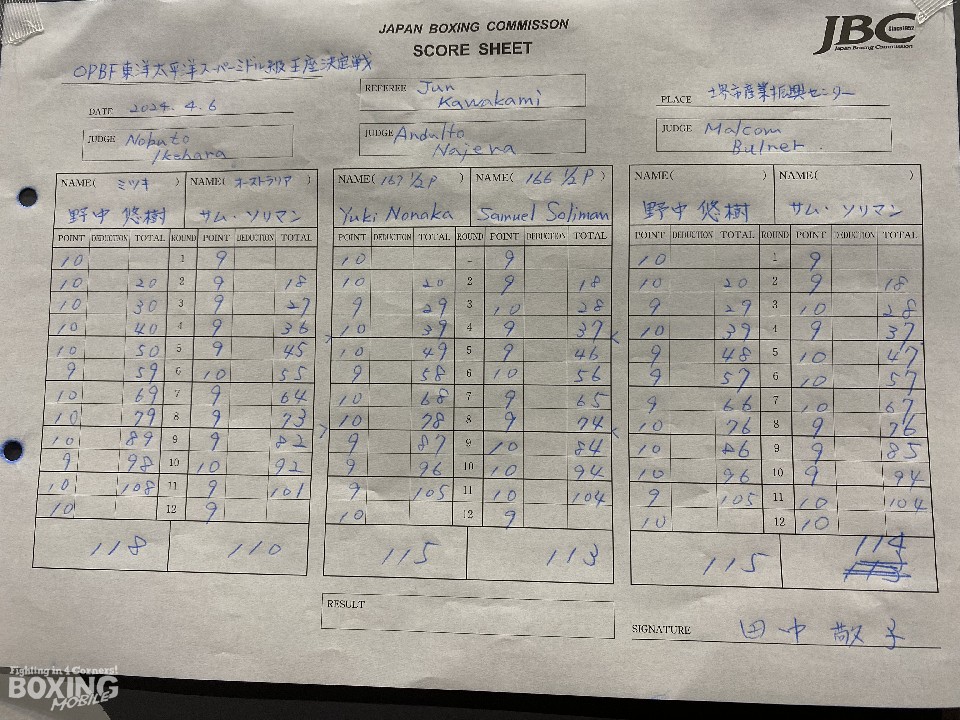 JAPAN BOXING COMMISSON
SCORE SHEET
JBC Since1952
Japan Boxing Commission
OPBF東洋太平洋スーパーミドル級王座決定戦
DATE 2024.4.6
REFEREE Jun Kawakami
PLACE 堺市産業振興センター
JUDGE Nobuto Ikehara
JUDGE Andulto Najena
JUDGE Malcom Bulner
NAME( ミツキ ) NAME( オーストラリア ) NAME( 167 1/2 P ) NAME( 166 1/2 P ) NAME( ) NAME( )
野中 悠樹 サム・ソリマン Yuki Nonaka Samuel Soliman 野中 悠樹 サム・ソリマン
POINT DEDUCTION TOTAL ROUND POINT DEDUCTION TOTAL POINT DEDUCTION TOTAL ROUND POINT DEDUCTION TOTAL POINT DEDUCTION TOTAL ROUND POINT DEDUCTION TOTAL
10 1 9 10 - 9 10 1 9
10 20 2 9 18 10 20 2 9 18 10 20 2 9 18
10 30 3 9 27 9 29 3 10 28 9 29 3 10 28
10 40 4 9 36 10 39 4 9 37 10 39 4 9 37
10 50 5 9 45 10 49 5 9 46 9 48 5 10 47
9 59 6 10 55 9 58 6 10 56 9 57 6 10 57
10 69 7 9 64 10 68 7 9 65 9 66 7 10 67
10 79 8 9 73 10 78 8 9 74 10 76 8 9 76
10 89 9 9 82 9 87 9 10 84 10 86 9 9 85
9 98 10 10 92 9 96 10 10 94 10 96 10 9 94
10 108 11 9 101 9 105 11 10 104 9 105 11 10 104
10 12 9 10 12 9 10 12 10
118 110 115 113 115 114 113
RESULT
SIGNATURE 田中 敬子
Fighting in 4 Corners!
BOXING
MOBILE